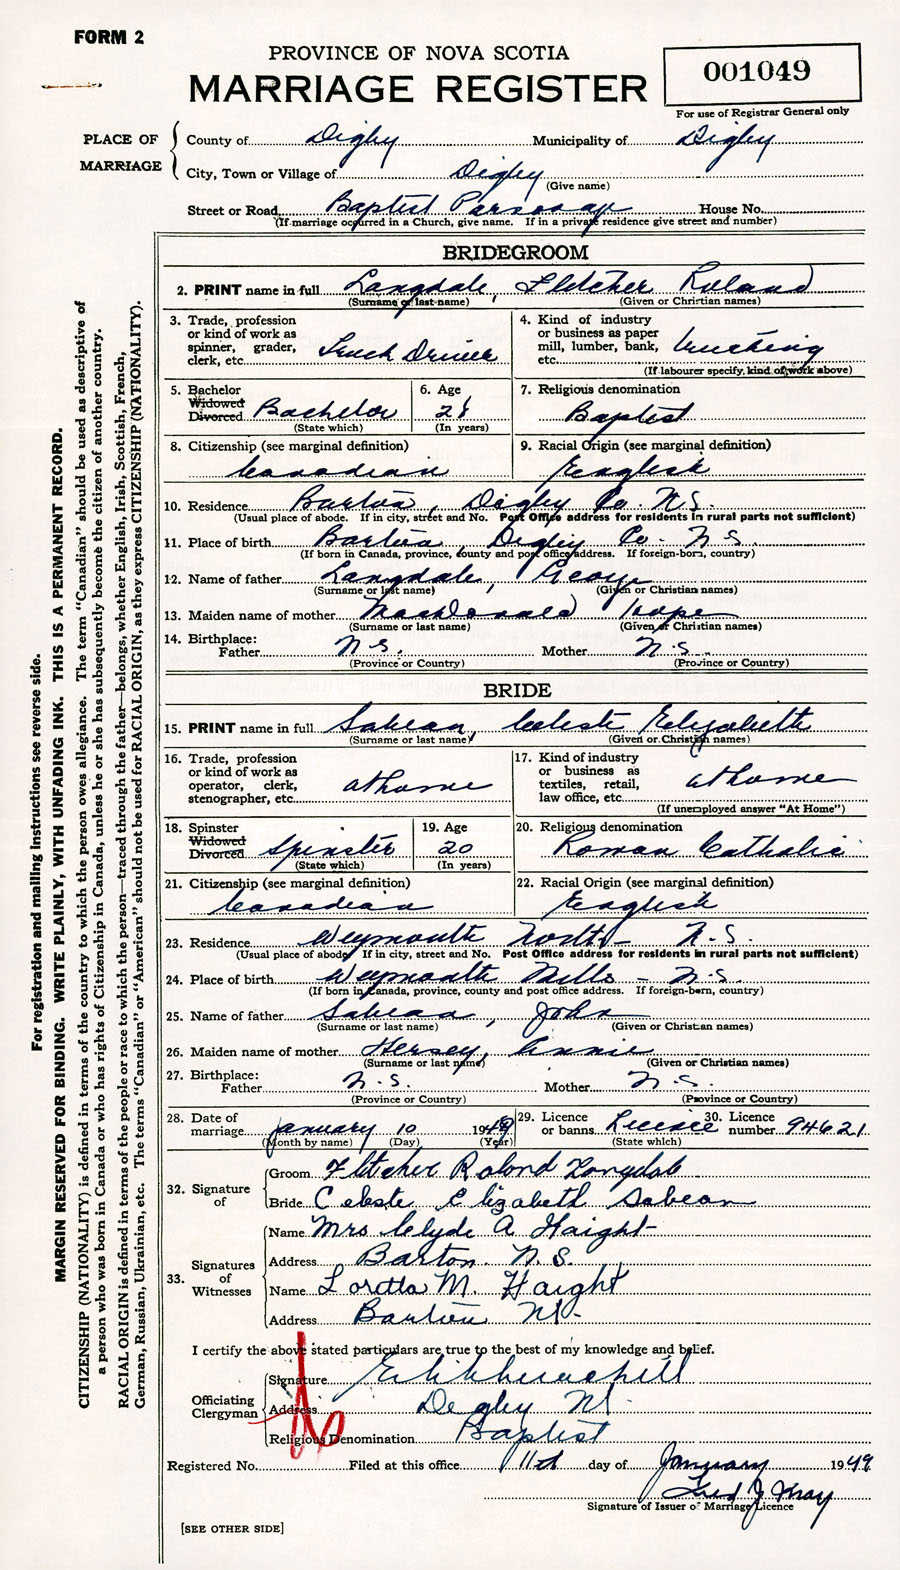 FORM 2
PROVINCE OF NOVA SCOTIA
MARRIAGE REGISTER
001049
For use of Registrar General only
PLACE OF MARRIAGE
County of Digby Municipality of Digby
City, Town or Village of Digby
(Give name)
Street or Road Baptist Parsonage House No.
(If marriage occurred in a Church, give name. If in a private residence give street and number)
BRIDEGROOM
2. PRINT name in full Langdale, Fletcher Roland
(Surname or last name) (Given or Christian names)
3. Trade, profession or kind of work as spinner, grader, clerk, etc. Truck Driver
4. Kind of industry or business as paper mill, lumber, bank, etc. trucking
(If labourer specify kind of work above)
5. Bachelor Widowed Divorced Bachelor
(State which)
6. Age 28
(In years)
7. Religious denomination
Baptist
8. Citizenship (see marginal definition)
Canadian
9. Racial Origin (see marginal definition)
English
10. Residence Barton, Digby Co. N.S.
(Usual place of abode. If in city, street and No. Post Office address for residents in rural parts not sufficient)
11. Place of birth Barton Digby Co. N.S.
(If born in Canada, province, county and post office address. If foreign-born, country)
12. Name of father Langdale, George
(Surname or last name) (Given or Christian names)
13. Maiden name of mother MacDonald Hope
(Surname or last name) (Given or Christian names)
14. Birthplace:
Father N.S. Mother N.S.
(Province or Country) (Province or Country)
BRIDE
15. PRINT name in full Sabean, Celeste Elizabeth
(Surname or last name) (Given or Christian names)
16. Trade, profession or kind of work as operator, clerk, stenographer, etc. at home
17. Kind of industry or business as textiles, retail, law office, etc. at home
(If unemployed answer "At Home")
18. Spinster Widowed Divorced Spinster
(State which)
19. Age 20
(In years)
20. Religious denomination
Roman Catholic
21. Citizenship (see marginal definition)
Canadian
22. Racial Origin (see marginal definition)
English
23. Residence Weymouth North - N.S.
(Usual place of abode If in city, street and No. Post Office address for residents in rural parts not sufficient)
24. Place of birth Weymouth Mills - N.S.
(If born in Canada, province, county and post office address. If foreign-born, country)
25. Name of father Sabean, John
(Surname or last name) (Given or Christian names)
26. Maiden name of mother Hersey, Annie
(Surname or last name) (Given or Christian names)
27. Birthplace:
Father N.S. Mother N.S.
(Province or Country) (Province or Country)
28. Date of marriage January 10 1949
(Month by name) (Day) (Year)
29. Licence or banns Licence
(State which)
30. Licence number 94621
32. Signature of
Groom Fletcher Roland Langdale
Bride Celeste Elizabeth Sabean
33. Signatures of Witnesses
Name Mrs Clyde A Haight
Address Barton. N.S.
Name Loretta M. Haight
Address Barton NS-
I certify the above stated particulars are true to the best of my knowledge and belief.
Officiating Clergyman
Signature
Address Digby NS.
Religious Denomination Baptist
Registered No. Filed at this office 11th day of January 1949
Signature of Issuer of Marriage Licence
[SEE OTHER SIDE]
For registration and mailing instructions see reverse side.
MARGIN RESERVED FOR BINDING. WRITE PLAINLY, WITH UNFADING INK. THIS IS A PERMANENT RECORD.
CITIZENSHIP (NATIONALITY) is defined in terms of the country to which the person owes allegiance. The term "Canadian" should be used as descriptive of
a person who was born in Canada or who has rights of Citizenship in Canada, unless he or she has subsequently become the citizen of another country.
RACIAL ORIGIN is defined in terms of the people or race to which the person—traced through the father—belongs, whether English, Irish, Scottish, French,
German, Russian, Ukrainian, etc. The terms "Canadian" or "American" should not be used for RACIAL ORIGIN, as they express CITIZENSHIP (NATIONALITY).